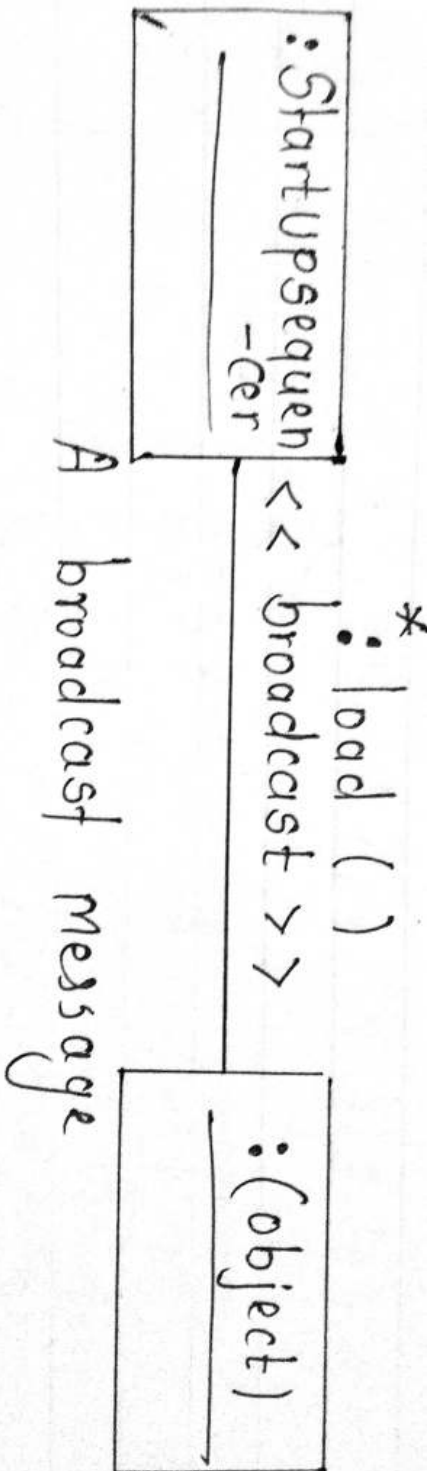 * : load ( )
: Startupsequen
-cer
<< broadcast >>
: (object)
A broadcast Message